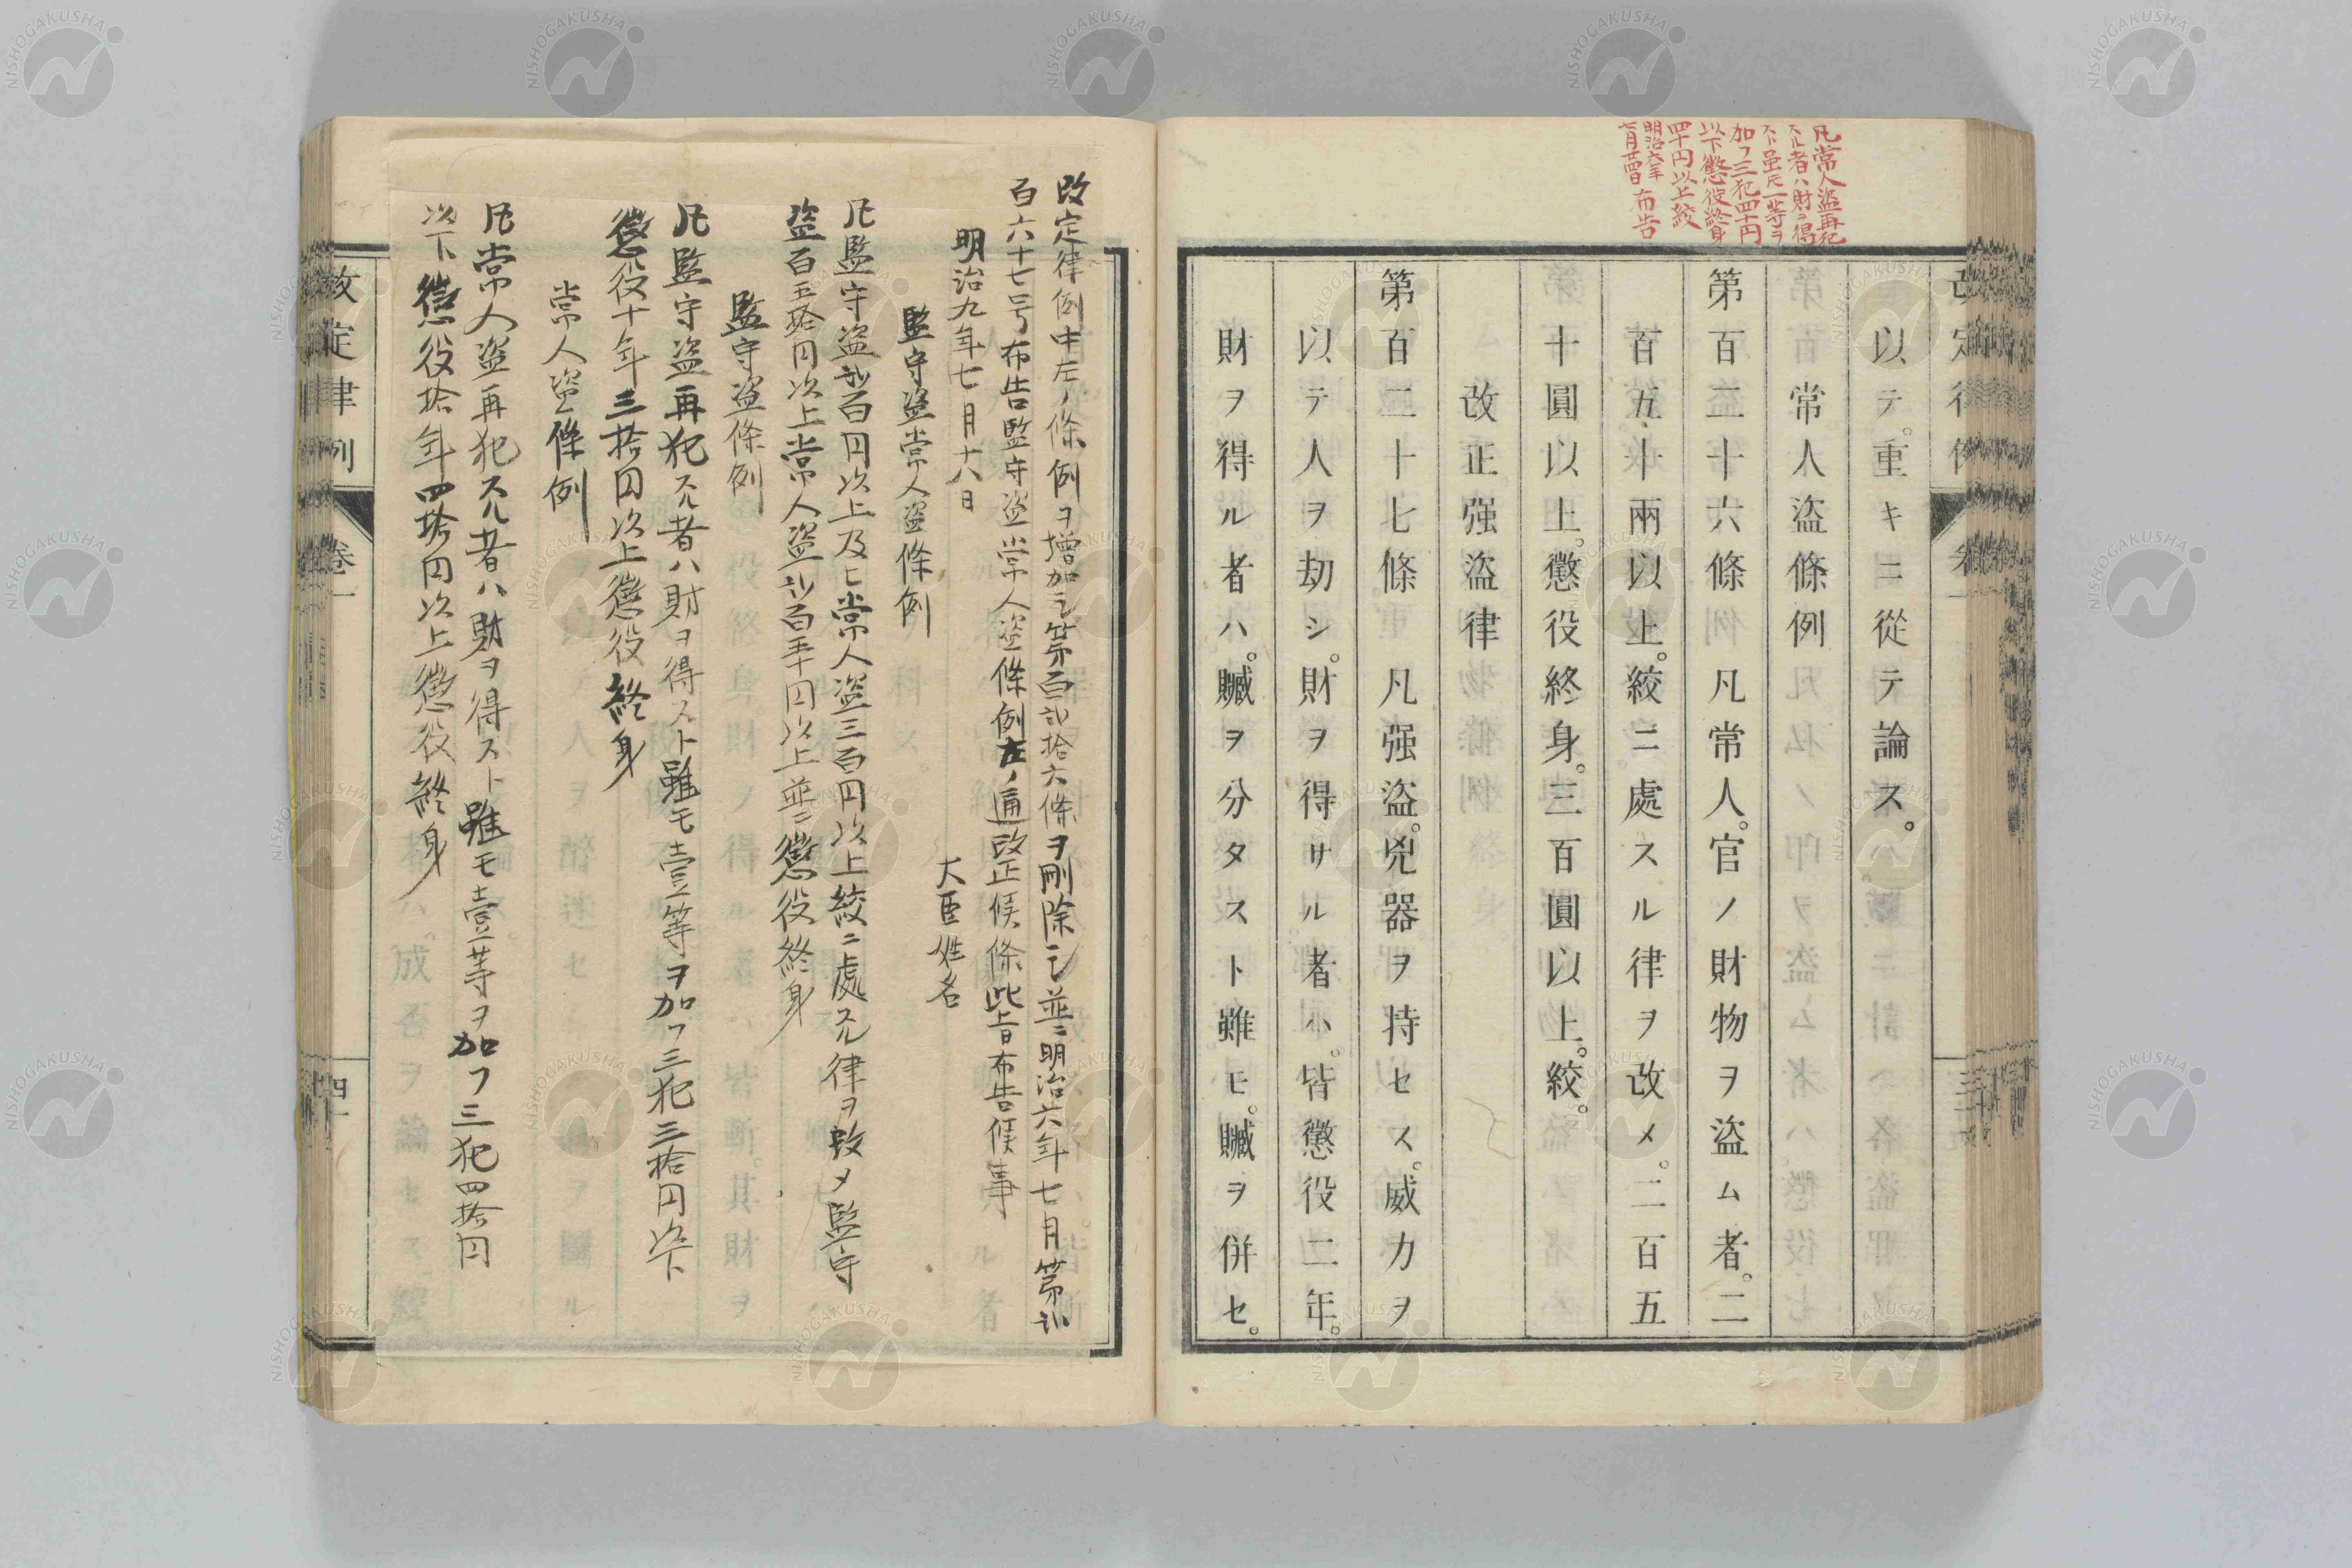 凡常人盗再犯
スル者ハ財ヲ得
スト虽𪜈一等ヲ
加フ三犯四十円
以下懲役終身
四十円以上絞
明治六年
七月廿四日布告
以テ。重キニ從テ論ス。
常人盜條例
第百二十六條 凡常人。官ノ財物ヲ盜ム者。二
百五十兩以上。絞ニ處スル律ヲ改メ。二百五
十圓以上。懲役終身。三百圓以上。絞。
改正强盜律
第百二十七條 凡强盜。兇器ヲ持セス。威力ヲ
以テ人ヲ劫シ。財ヲ得サル者ハ。皆懲役二年。
財ヲ得ル者ハ。贓ヲ分タスト雖𪜈。贓ヲ併セ。
改定律例中左ノ條例ヲ増加シ第百弐拾六條ヲ刪除シ並ニ明治六年七月第弐
百六十七号布告監守盗常人盗條例左ノ通改正候條此旨布告候事
明治九年七月十八日
大臣姓名
監守盗常人盗條例
凡監守盗弐百円以上及ヒ常人盗三百円以上絞ニ處スル律ヲ改メ監守
盗百五拾円以上常人盗弐百五十円以上並ニ懲役終身
監守盗條例
凡監守盗再犯スル者ハ財ヲ得スト雖モ壹等ヲ加フ三犯三拾円以下
懲役十年三拾円以上懲役終身
常人盗條例
凡常人盗再犯スル者ハ財ヲ得スト雖モ壹等ヲ加フ三犯四拾円
以下懲役拾年四拾円以上懲役終身
改定律例
卷一
四十